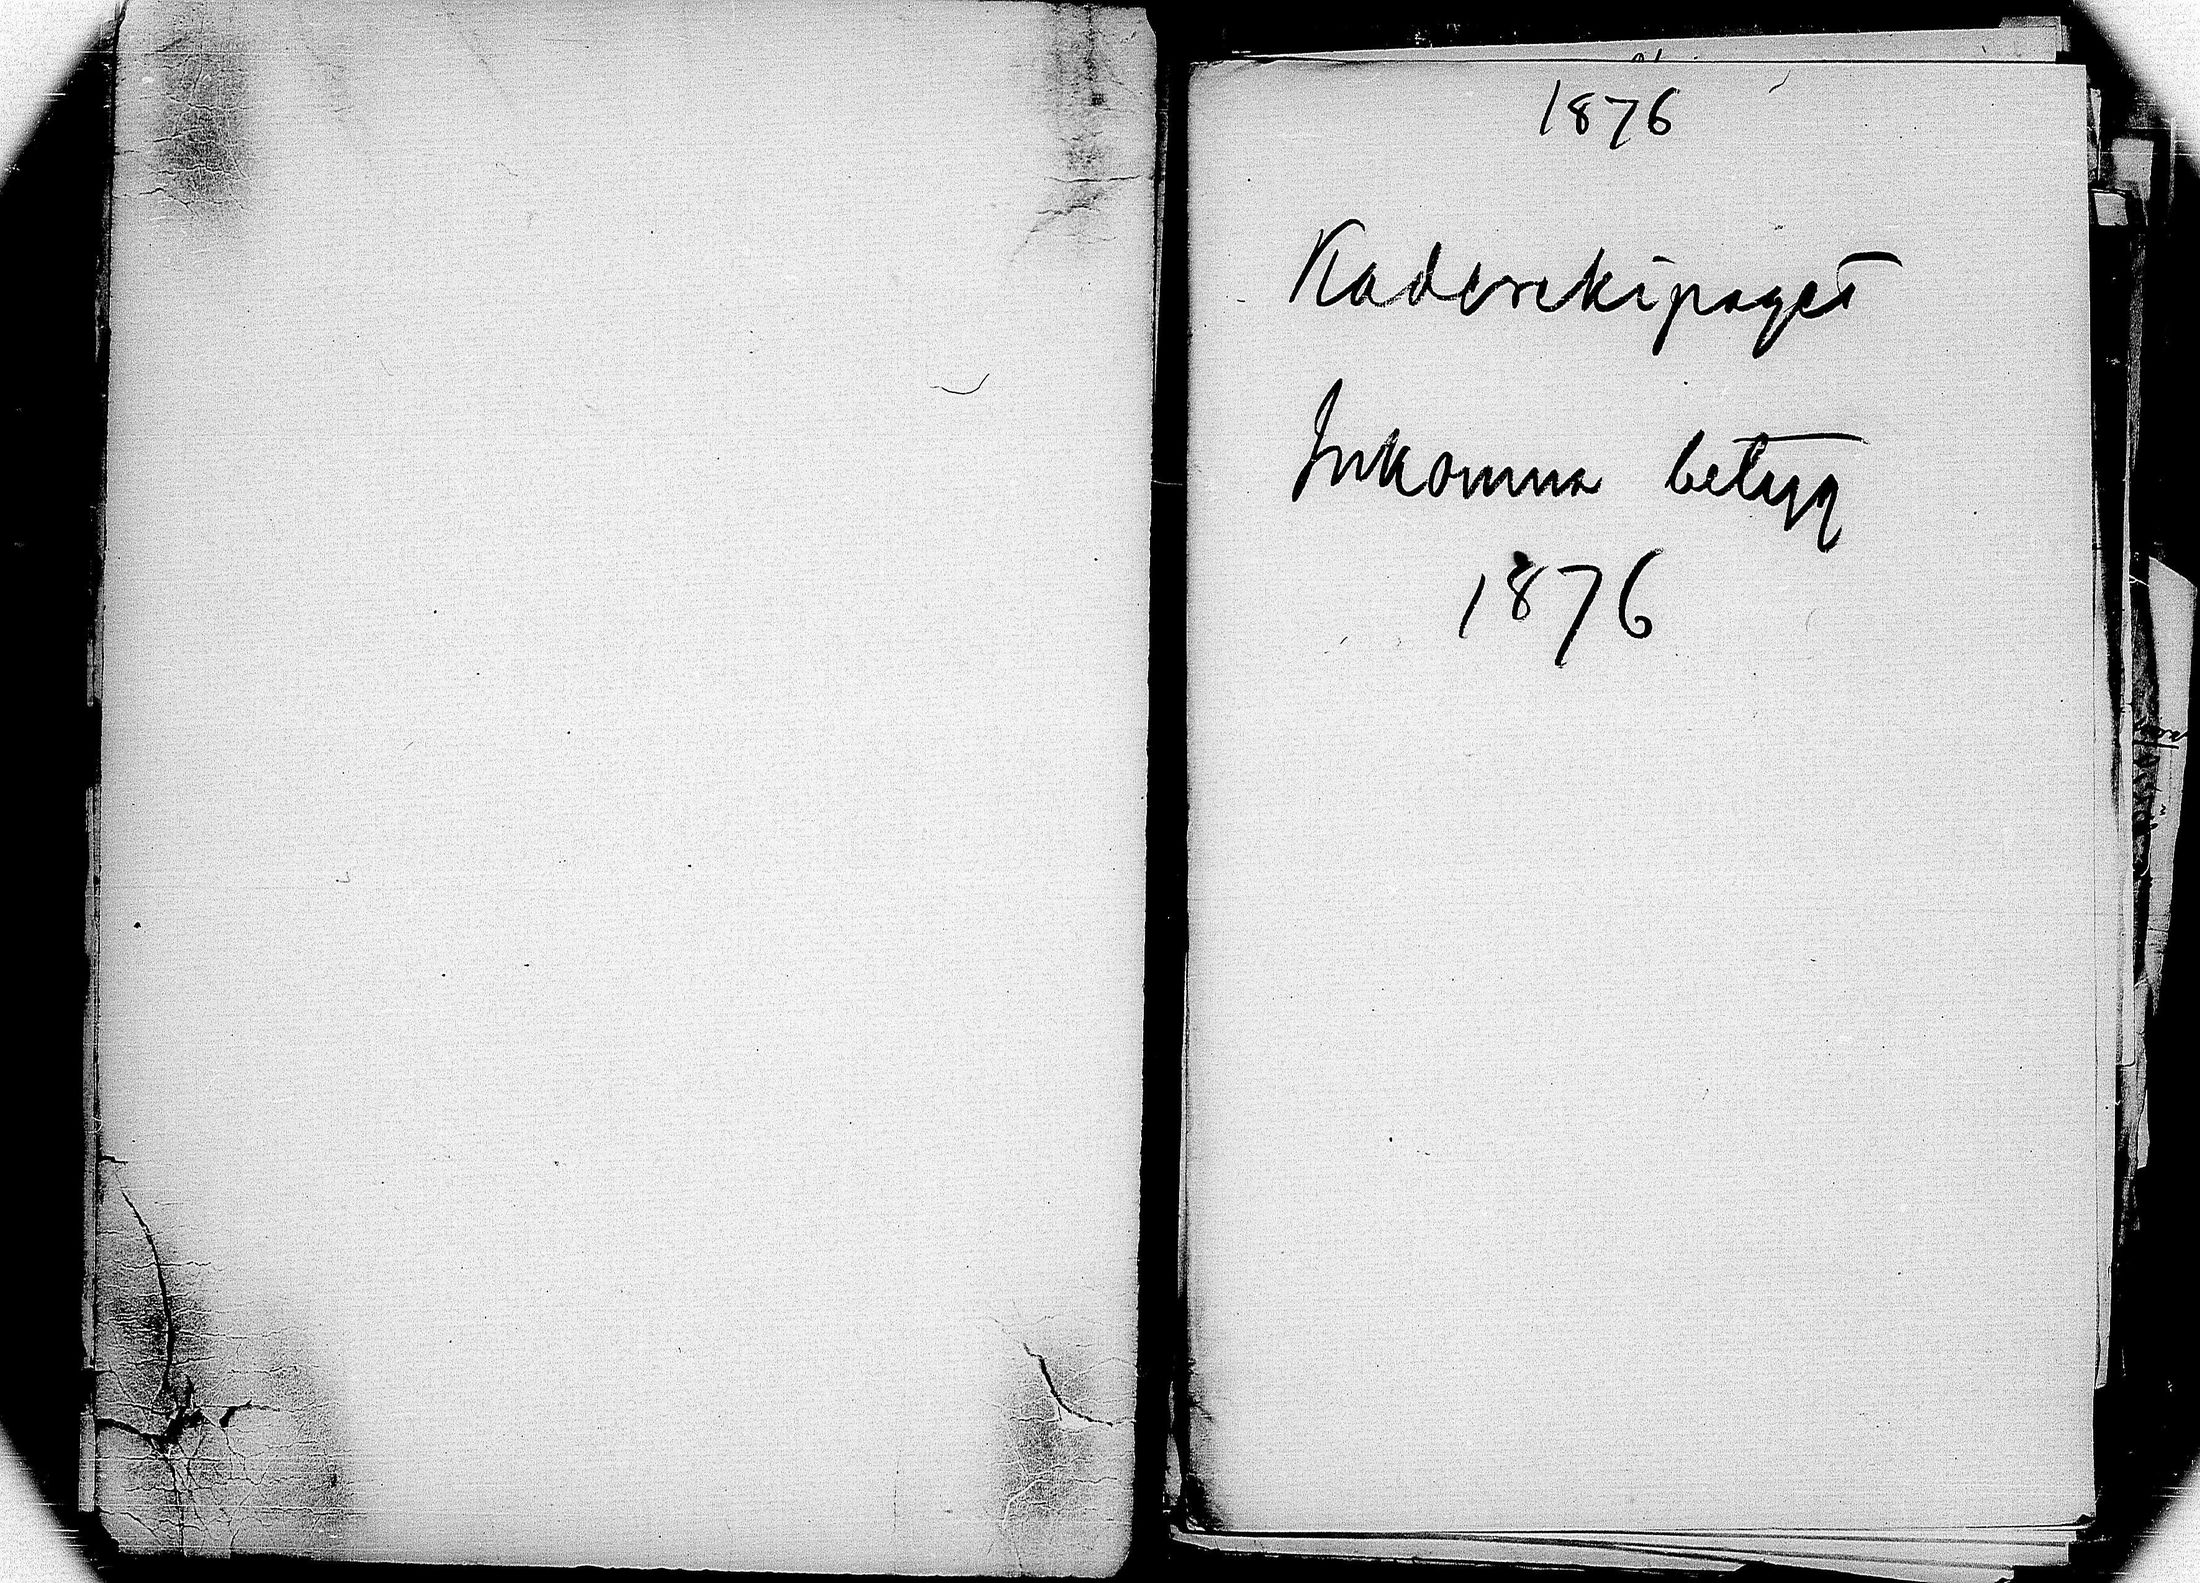 1876
Kaderekipaget
Inkomna betyg
1876